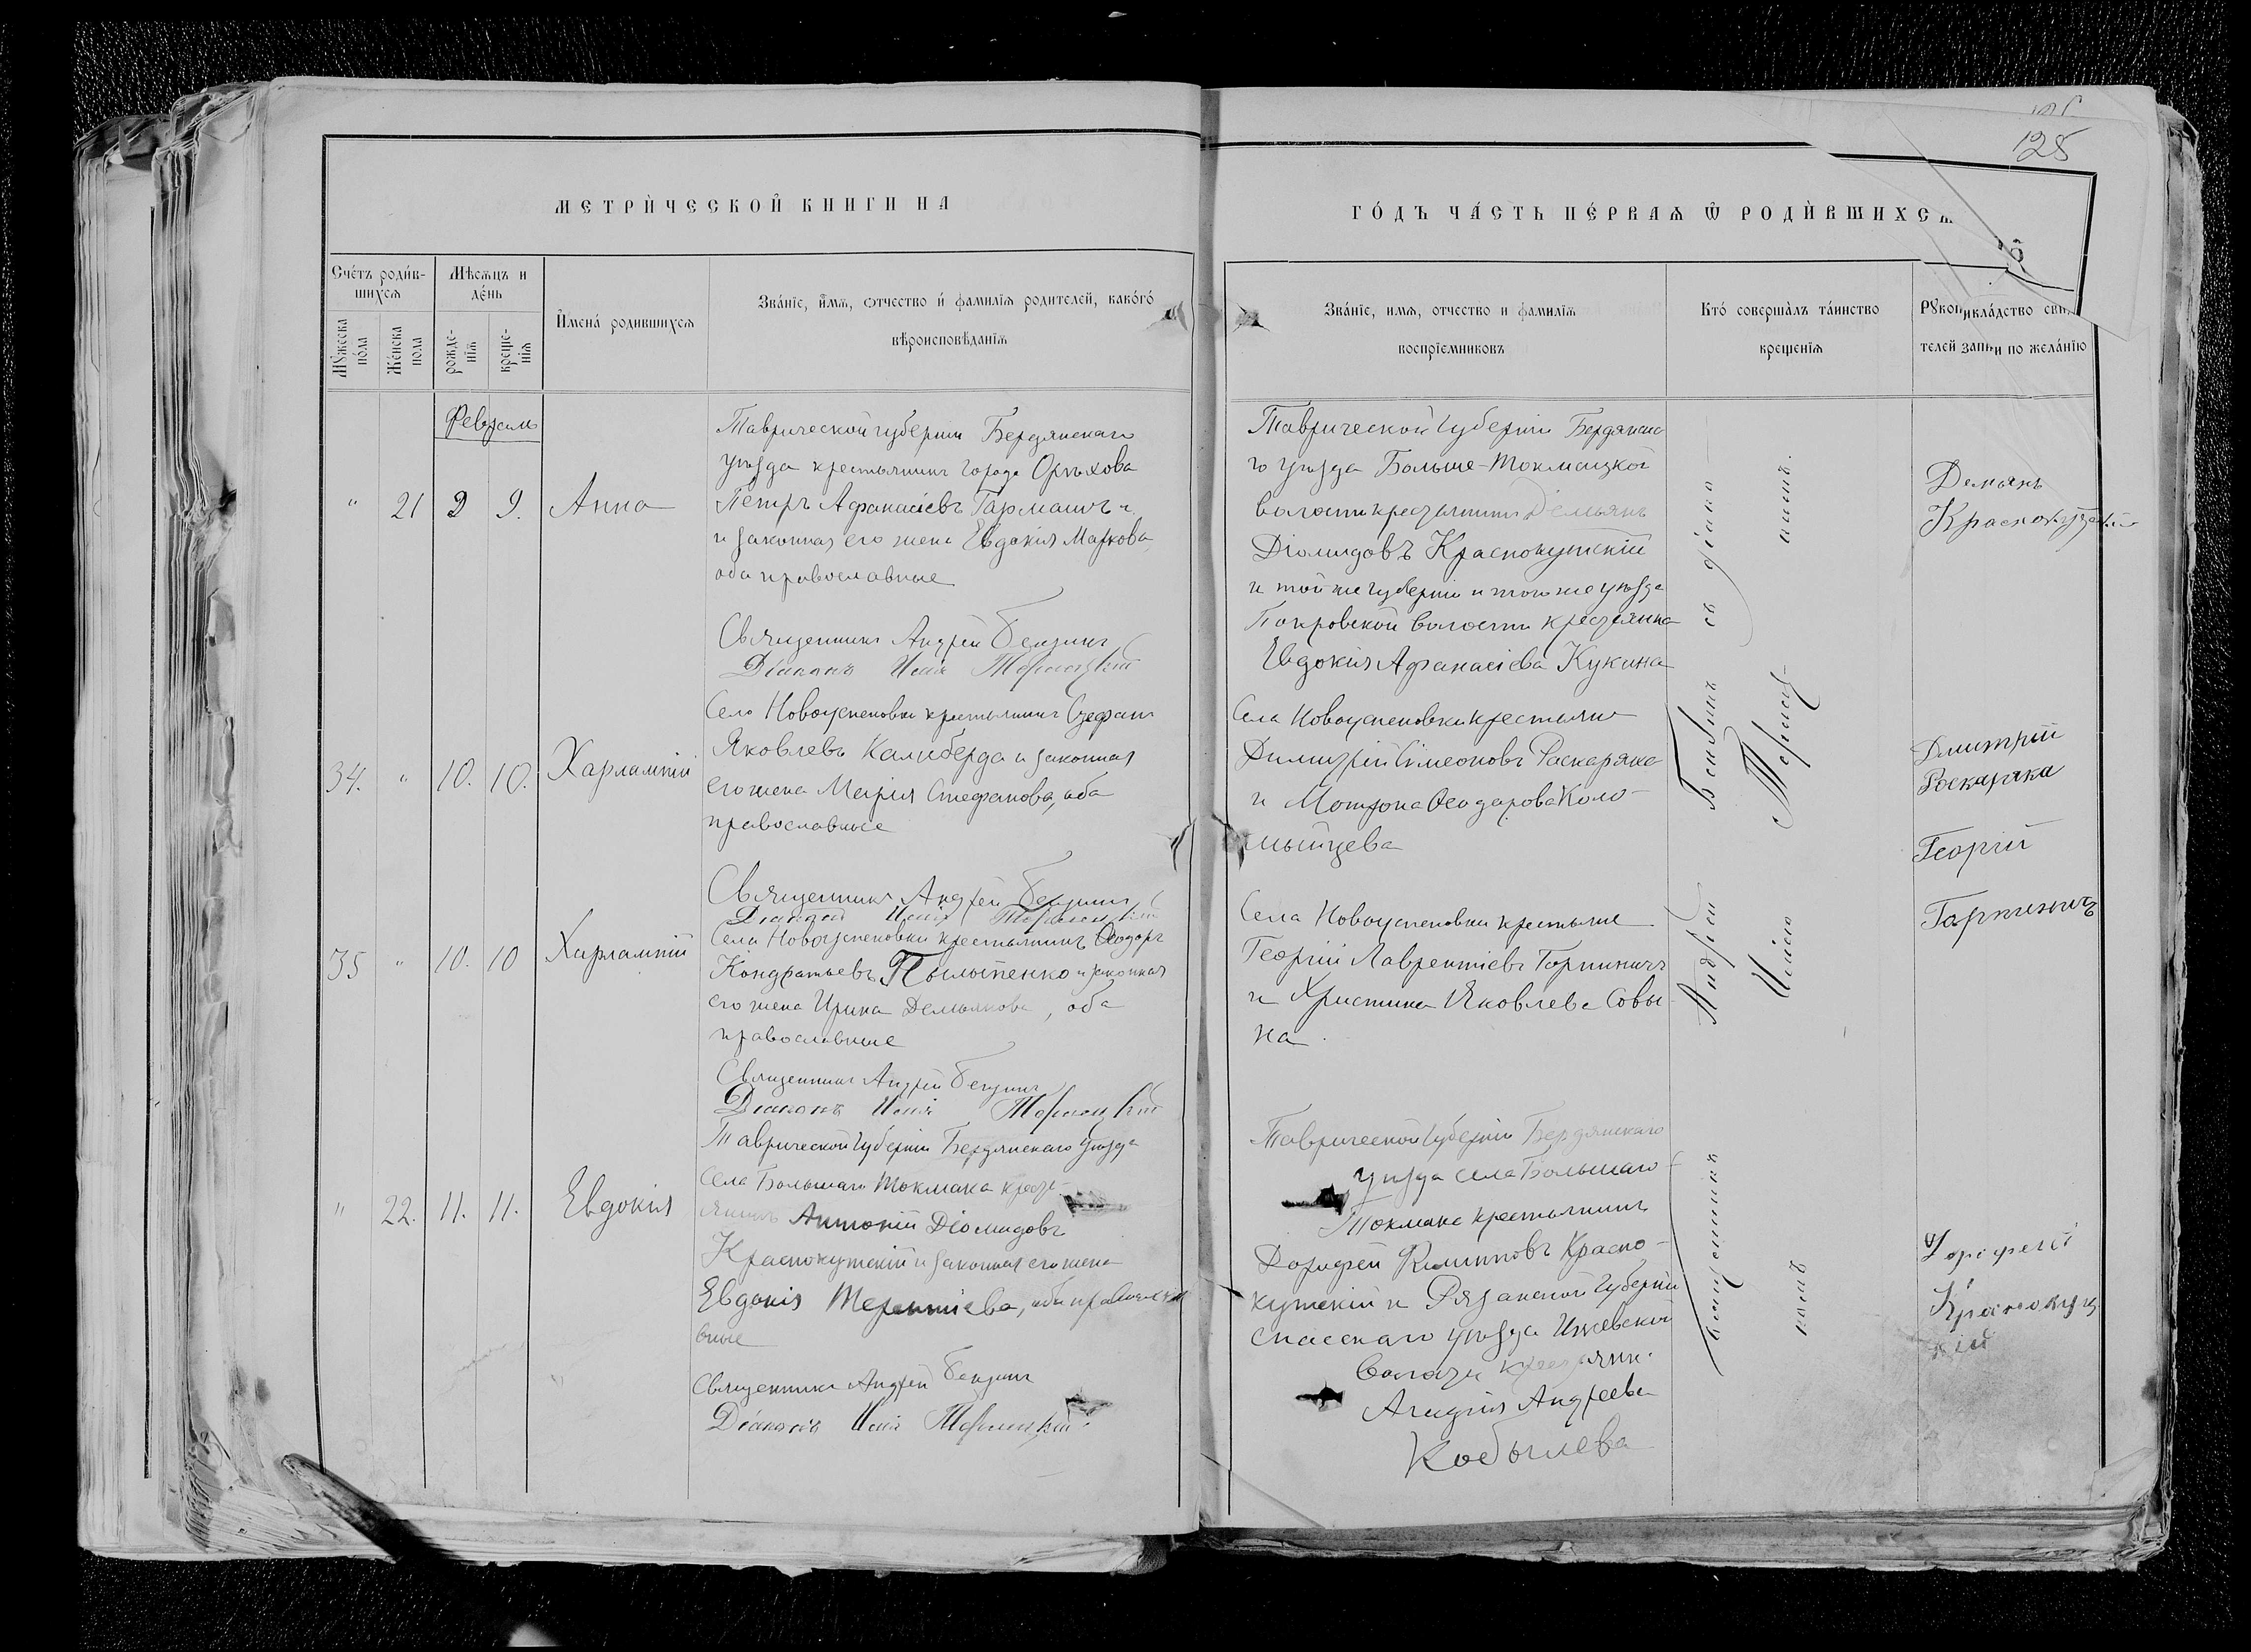 128
МЕТРИ́ЧЕСКОЙ КНИГИ НА
ГО́ДЪ ЧА́СТЬ ПЕ́РВАѦ Ѿ РОДИ́ВШИХСѦ
Сче́тъ роди́в-
шихсѧ
Мꙋжеска
по́ла
Же́нска
пола
Мѣ́сѧцъ и
де́нь
рожде-
нїѧ
креще-
нїѧ
И҆мена́ родившихсѧ
Зва́нїе, и҆́мѧ, ѻтчество и҆ фамилїѧ родителей, како́гѡ
вѣроисповѣданїѧ
Зва́нїе, имѧ, отчество и фамилїѧ
воспрїемниковъ
Кто́ совершалъ та́инство
крещенїѧ
Рꙋкоприкла́дство сви
телей записи по жела́нїю
Февраль
"
21
9
9.
Анна
Таврической губерніи Бердянскаго
уѣзда крестьянинъ города Орѣхова
Петръ Афанасіевъ Гармашъ
и законная его жена Евдокія Маркова,
оба православные
Священникъ Андрей Бензинъ
Діаконъ Илія Терлецкій
Таврической губерніи Бердянска
го уѣзда Больше-Токмацкой
волости крестьянинъ Демьянъ
Діомидовъ Краснокутскій
и той же губерніи и того же уѣзда
Покровской волости крестьянка
Евдокія Афанасіева Кукина
Демьянъ
Краснокутскій
34.
"
10.
10.
Харлампій
Села Новоуспеновки крестьянинъ Стефанъ
Яковлевъ Калиберда и законная
его жена Марія Стефанова, оба
православные
Священникъ Андрей Бензинъ
Діаконъ Илія Терлецкій
Села Новоуспеновки крестьяне
Димитрій Симеоновъ Раскаряка
и Мотрона Ѳеодорова Коло-
мыйцева
Дмитрій
Раскаряка
35
"
10.
10
Харлампій
Села Новоуспеновки крестьянинъ Ѳеодоръ
Кондратьевъ Пылыпенко и законная
его жена Ирина Демьянова, оба
православные
Священникъ Андрей Бензинъ
Діаконъ Илія Терлецкій
Села Новоуспеновки крестьяне
Георгій Лаврентіевъ Горпиничъ
и Христина Яковлева Совы-
на.
Георгій
Гарпиничъ
"
22.
11.
11.
Евдокія
Таврической губерніи Бердянскаго уѣзда
села Большаго Токмака кресть-
янинъ Антоній Діомидовъ
Краснокутскій и законная его жена
Евдокія Терентіева, оба правосла
вные
Священникъ Андрей Бензинъ
Діаконъ Илія Терлецкій
Таврической губерніи Бердянскаго
уѣзда села Большаго
Токмака крестьянинъ
Дорофей Климповъ Красно-
кутскій и Рязанской губерніи
Спасскаго уѣзда Ижевской
волости крестьянк.
Андреева
Кобылева
Дорофей
Краснокутц
кій
Священникъ Андрей Бензинъ съ діако-
номъ Иліею Терлец-